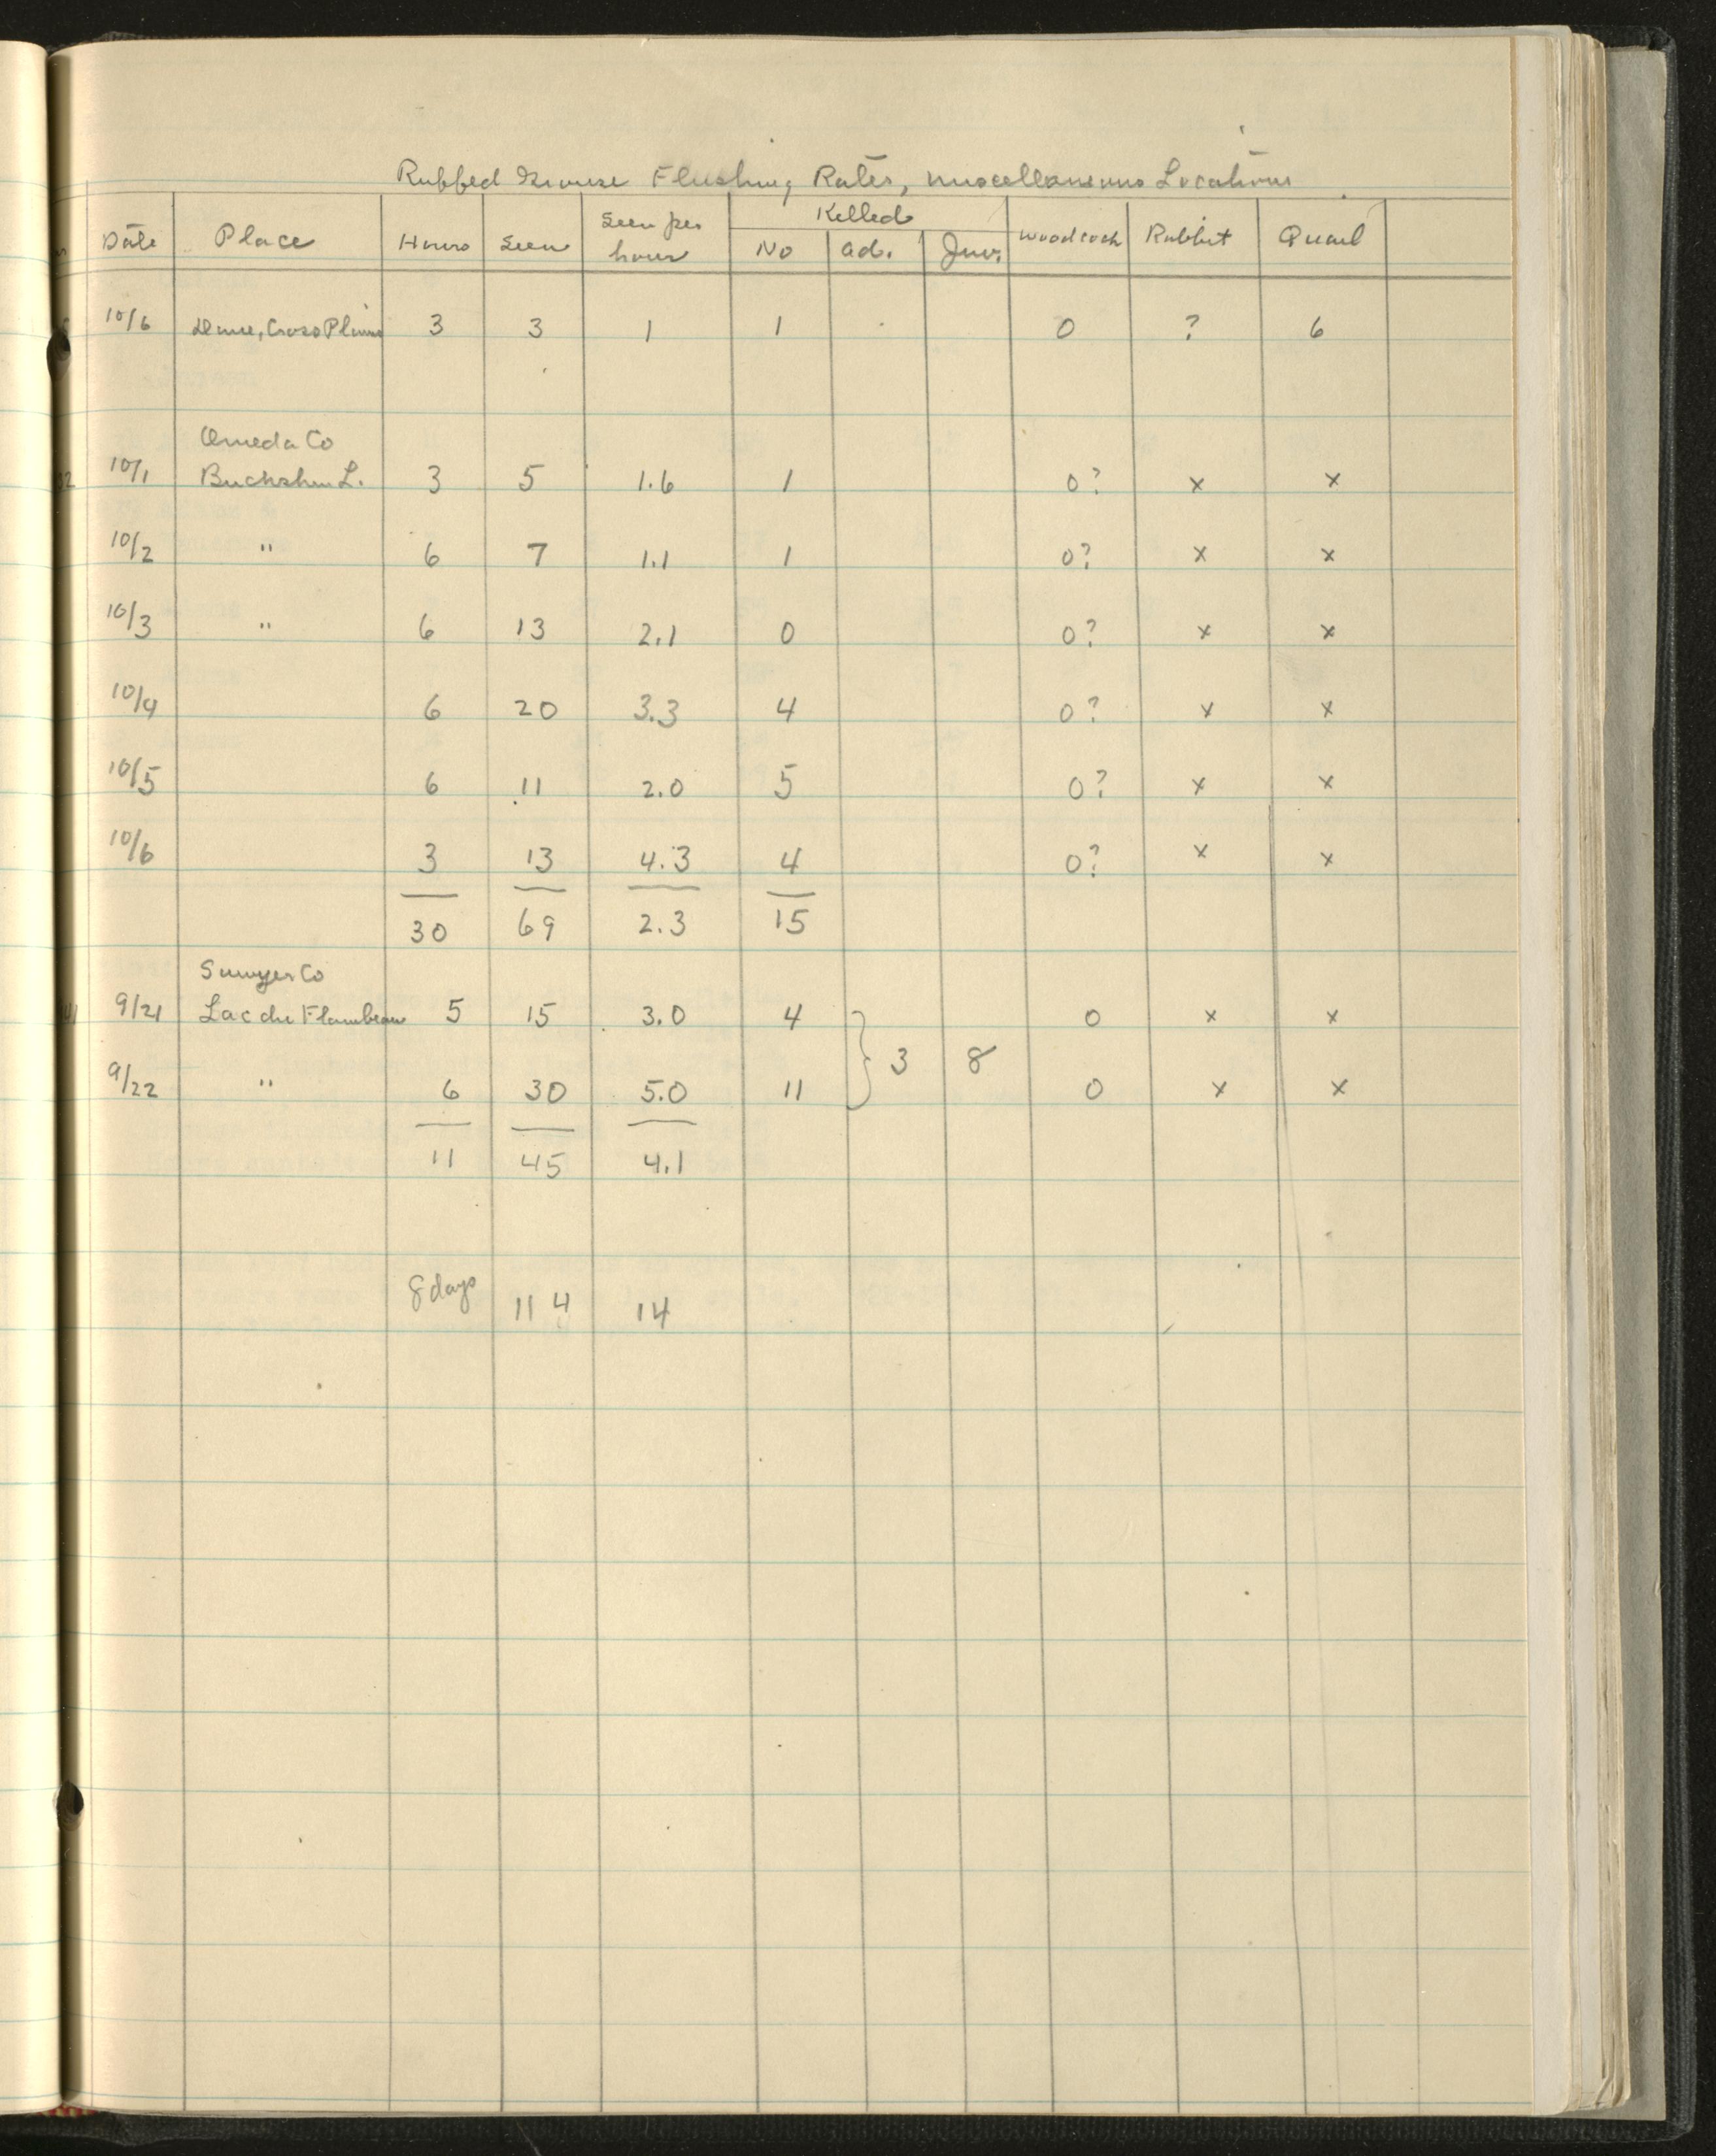 Ruffed Grouse Flushing Rates, Miscellaneous Locations
Date Place Hours Seen Seen per hour Killed No Ad. Juv. Woodcock Rabbit Quail
10/6 Dane, Cross Plains 3 3 1 1 0 ? 6
Oneida Co
10/1 Buckskin L. 3 5 1.6 1 0? x x
10/2 " 6 7 1.1 1 0? x x
10/3 " 6 13 2.1 0 0? x x
10/4 6 20 3.3 4 0? x x
10/5 6 11 2.0 5 0? x x
10/6 3 13 4.3 4 0? x x
30 69 2.3 15
Sawyer Co
9/21 Lac du Flambeau 5 15 3.0 4 0 x x
3 8
9/22 " 6 30 5.0 11 0 x x
11 45 4.1
8 days 114 14